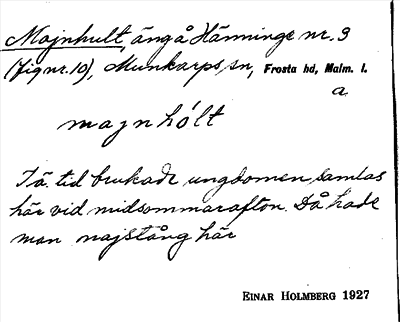 Majnhult, äng å Hänninge nr. 3
(Fig nr. 10), Munkarps sn, Frosta hd, Malm. l.
a
majnhólt
I ä. tid brukade ungdomen samlas
här vid midsommarafton. Då hade
man majstång här
EINAR HOLMBERG 1927